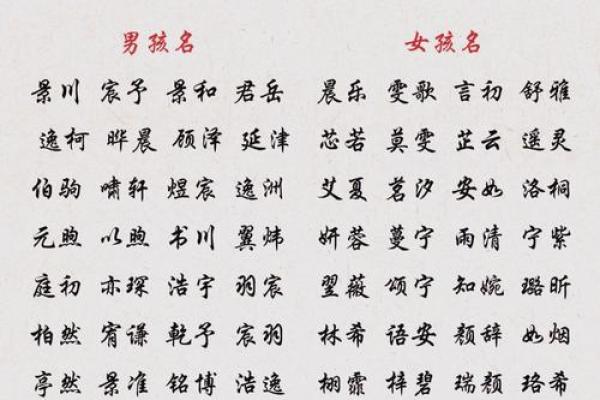 男孩名 女孩名
景川 宸予 景和 君岳 晨乐 雯歌 言初 舒雅
逸柯 晔晨 顾泽 延津 芯若 莫雯 芷云 遥灵
伯驹 啸轩 煜宸 逸洲 艾夏 茗汐 安如 洛桐
元煦 以煦 书川 翼炜 妍蓉 蔓宁 雨清 宁紫
庭初 亦琛 浩宇 羽宸 翌薇 颂宁 知婉 璐昕
柏然 宥谦 乾予 宸羽 林希 语安 颜辞 如烟
亭然 景准 铭博 浩逸 栩霏 梓碧 瑞颜 珞希